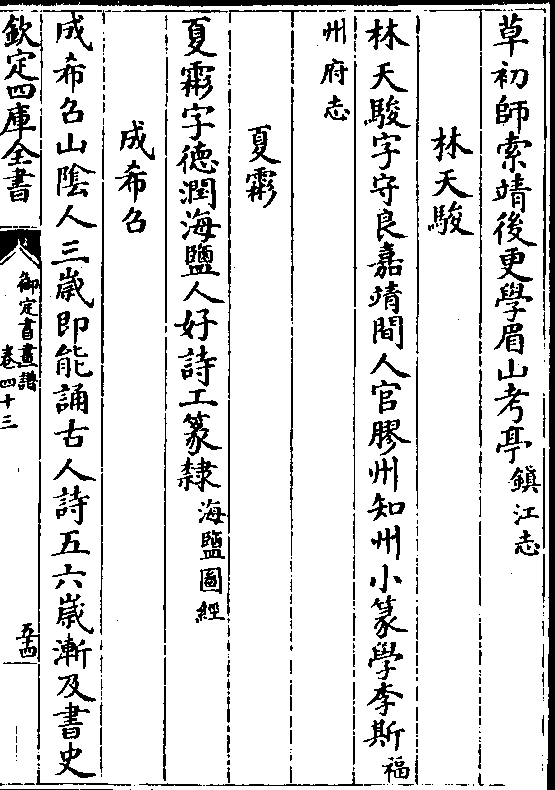 草初師索靖後更學眉山考亭鎮江志
林天駿
林天駿字守良嘉靖間人官膠州知州小篆學李斯福
州府志
夏霦
夏霦字德潤海鹽人好詩工篆隸海鹽圖經
成希召
成希召山陰人三歲即能誦古人詩五六歲漸及書史
欽定四庫全書
御定書畫譜
卷四十三
五四